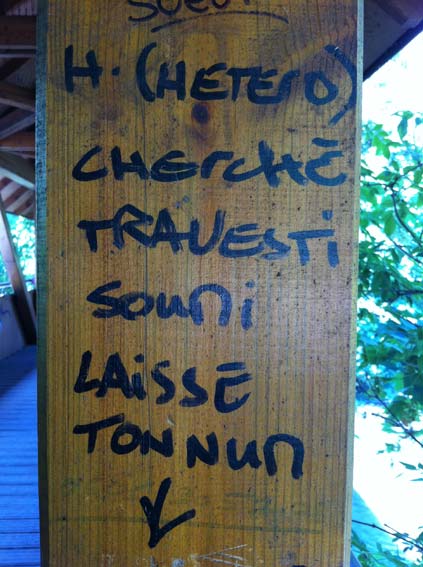 H. (HETERO)
CHERCHE
TRAVESTI
SOUMI
LAISSE
TON NUM